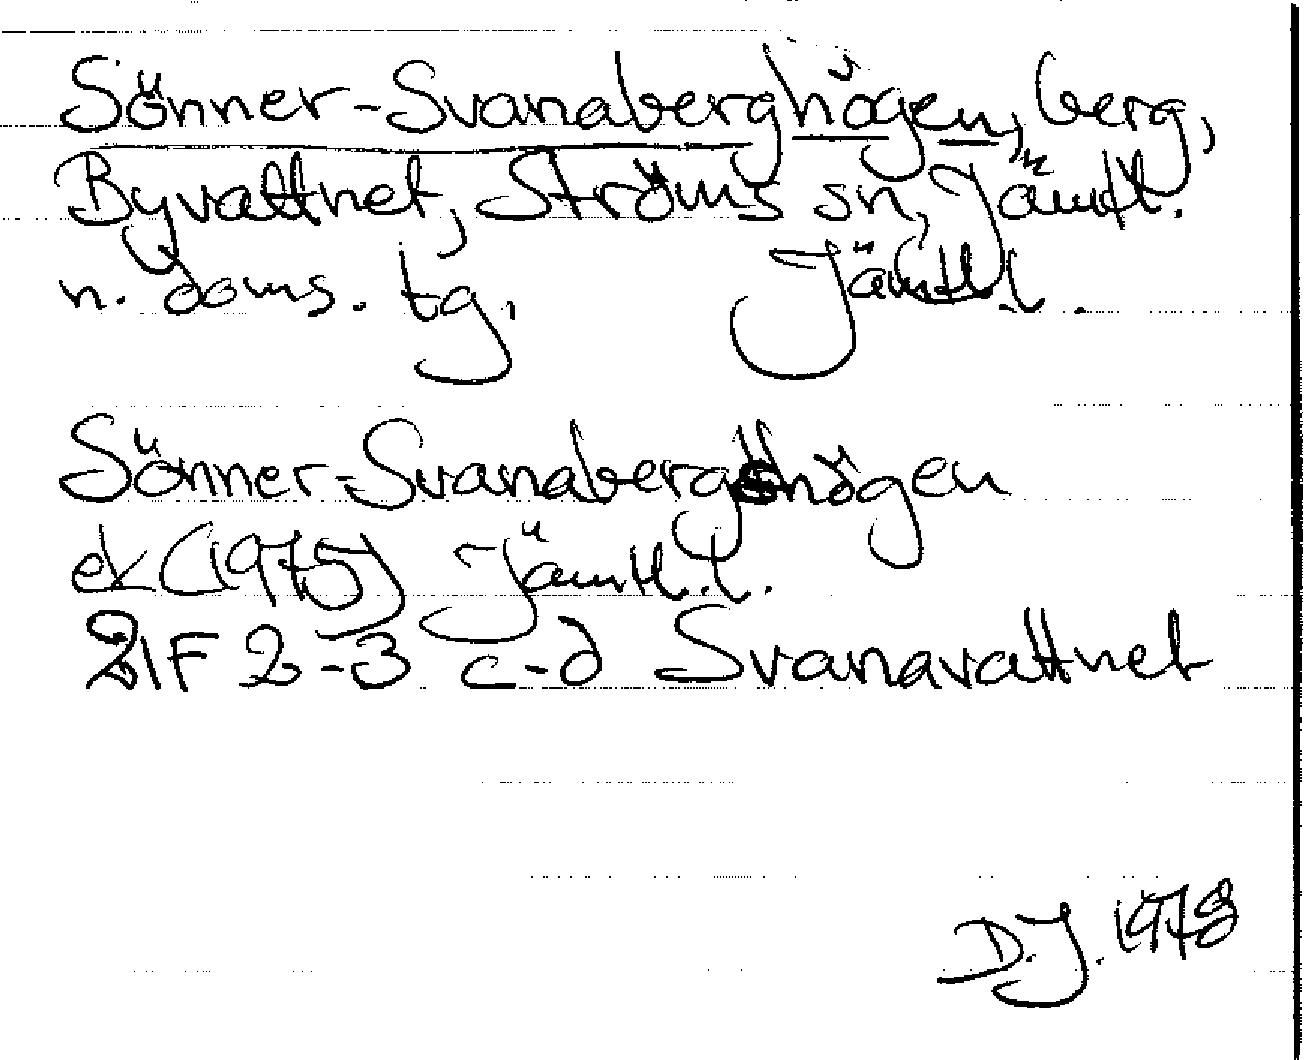 Sönner-Svanaberghögen, berg,
Byvattnet, Ströms sn, Jämtl.
n. doms. tg. Jämtl.l.
Sönner-Svanaberghögen
ek (1975) Jämtl.l.
21F 2-3 c-d Svanavattnet
D.J. 1978